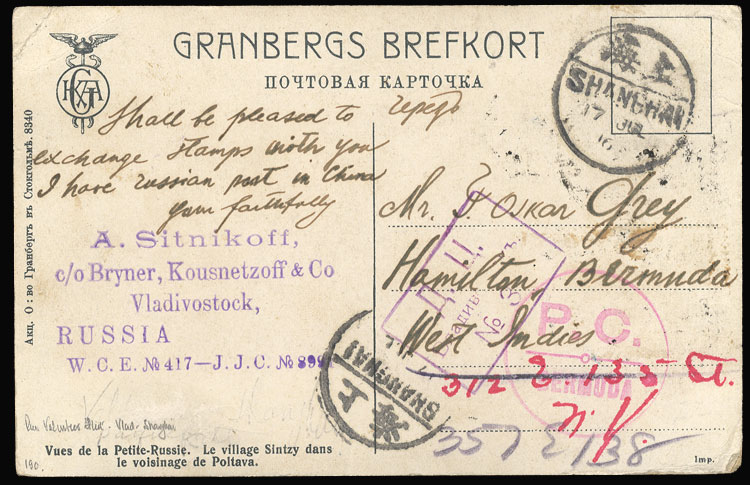 GRANBERGS BREFKORT
ПОЧТОВАЯ КАРТОЧКА
上海
SHANGHAI
17
16
Акц. О:во Гранбергъ въ Стокгольмѣ. 8340
Shall be pleased to
exchange stamps with you
I have russian post in China
Your faithfully
A. Sitnikoff,
c/o Bryner, Kousnetzoff & Co
Vladivostock,
RUSSIA
W. C. E. № 417 — J. J. C. № 899
чередо
Mr. J. Oskar Grey
Hamilton, Bermuda
West Indies
Д. Ц.
№
P.C.
BERMUDA
312 E 135 St.
N.Y.
35 E 138
上海
SHANGHAI
Vues de la Petite-Russie. Le village Sintzy dans
le voisinage de Poltava.
190.
Imp.